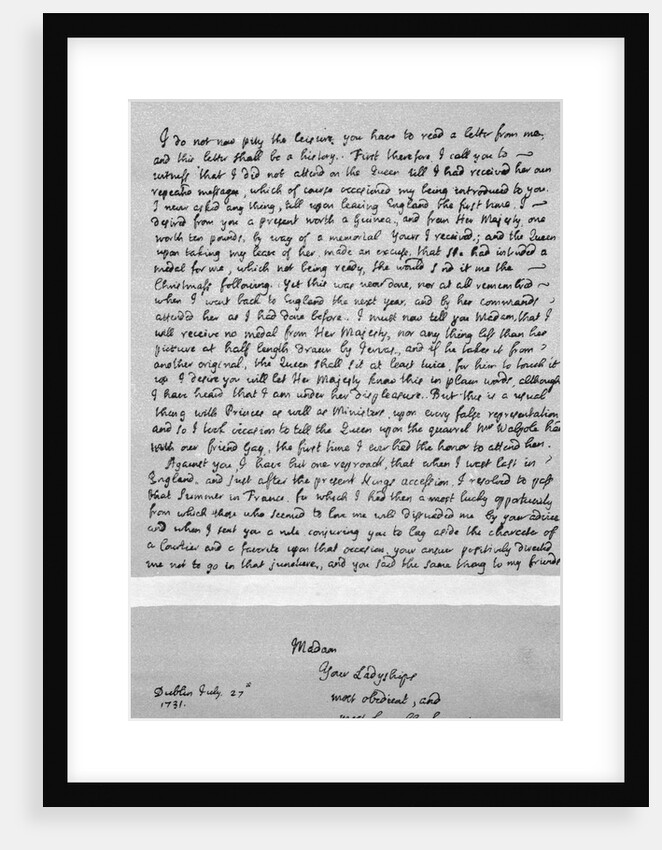 I do not now pity the leisure you have to read a letter from me,
and this letter shall be a history. First therefore, I call you to
witness that I did not attend on the Queen till I had received her own
repeated messages, which of course occasioned my being introduced to you.
I never asked any thing, till upon leaving England the first time, I
desired from you a present worth a Guinea, and from Her Majesty one
worth ten pounds, by way of a memorial. Yours I received; and the Queen
upon taking my leave of her, made an excuse, that she had intended a
medal for me, which not being ready, She would send it me the
Christmass following. Yet this was never done, nor at all remembred
when I went back to England the next year, and by her commands
attended her as I had done before. I must now tell you Madam, that I
will receive no medal from Her Majesty, nor any thing less than her
picture at half length drawn by Gervas, and if he takes it from
another original, the Queen shall sit at least twice, for him to touch it
up. I desire you will let Her Majesty know this in plain words, although
I have heard that I am under her displeasure. But this is a usual
thing with Princes as well as Ministers, upon every false representation
and so I took occasion to tell the Queen upon the quarrel Mr Walpole had
with our friend Gay, the first time I ever had the honor to attend her.
Against you, I have but one reproach, that when I was last in
England, and just after the present Kings accession, I resolved to pass
that Summer in France, for which I had then a most lucky opportunity
from which those who seemed to love me well disuaded me by your advice
and when I sent you a note conjuring you to lay aside the character of
a Courtier and a favorite upon that occasion, your answer positively directed
me not to go in that juncture, and you said the same thing to my friends
Madam
Your Ladyships
Dublin July. 27th
most obedient, and
1731.